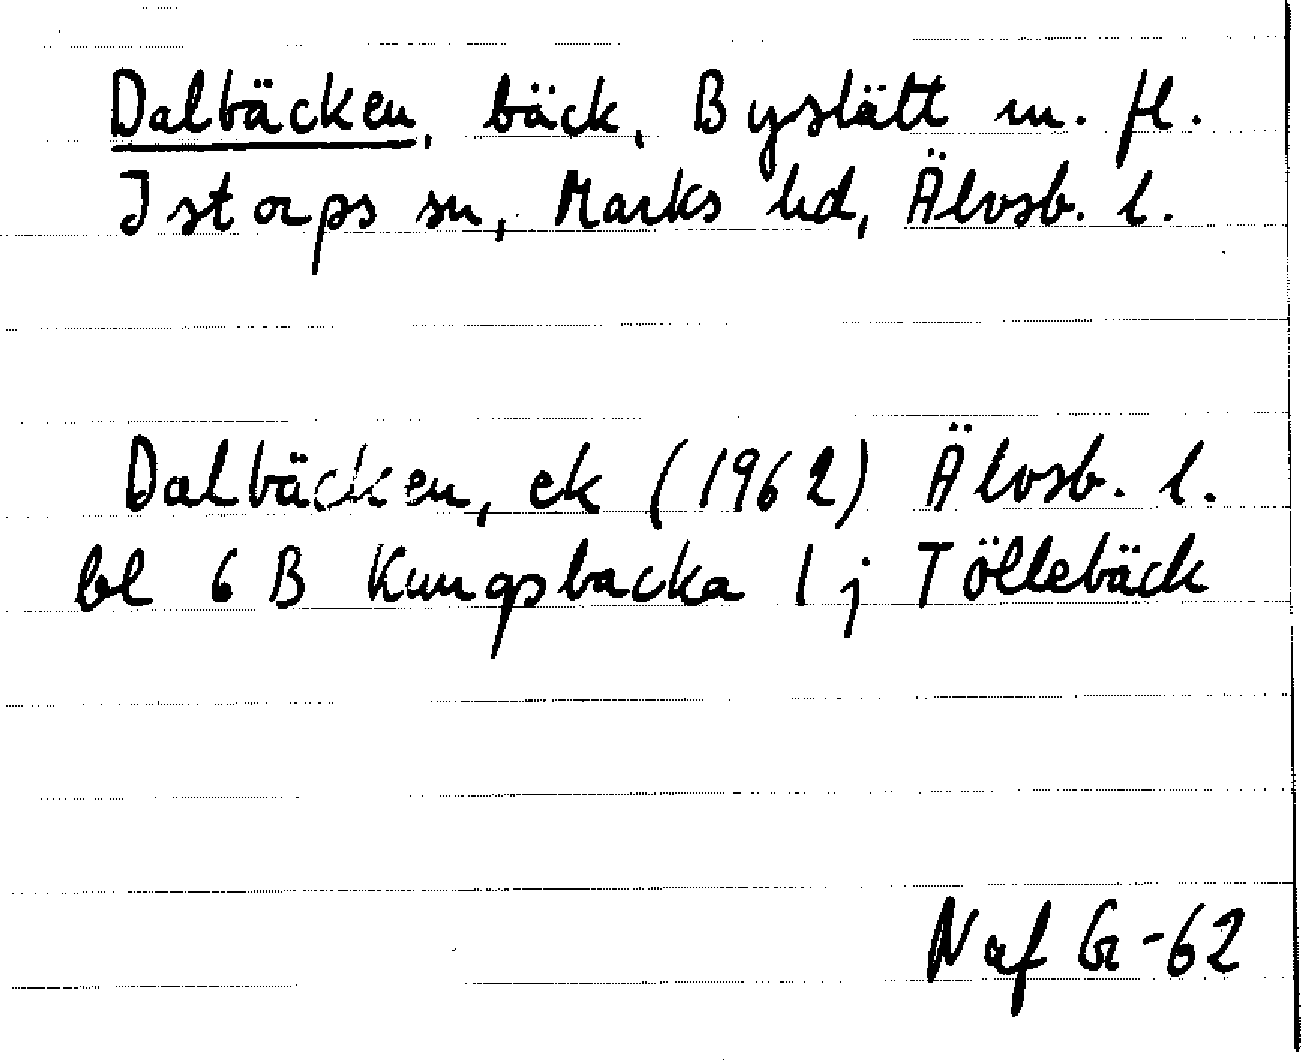 Dalbäcken, bäck, Byslätt m. fl.
Istorps sn, Marks hd, Älvsb. l.
Dalbäcken, ek (1962) Älvsb. l.
bl 6 B Kungsbacka 1 j Töllebäck
Naf Gr-62